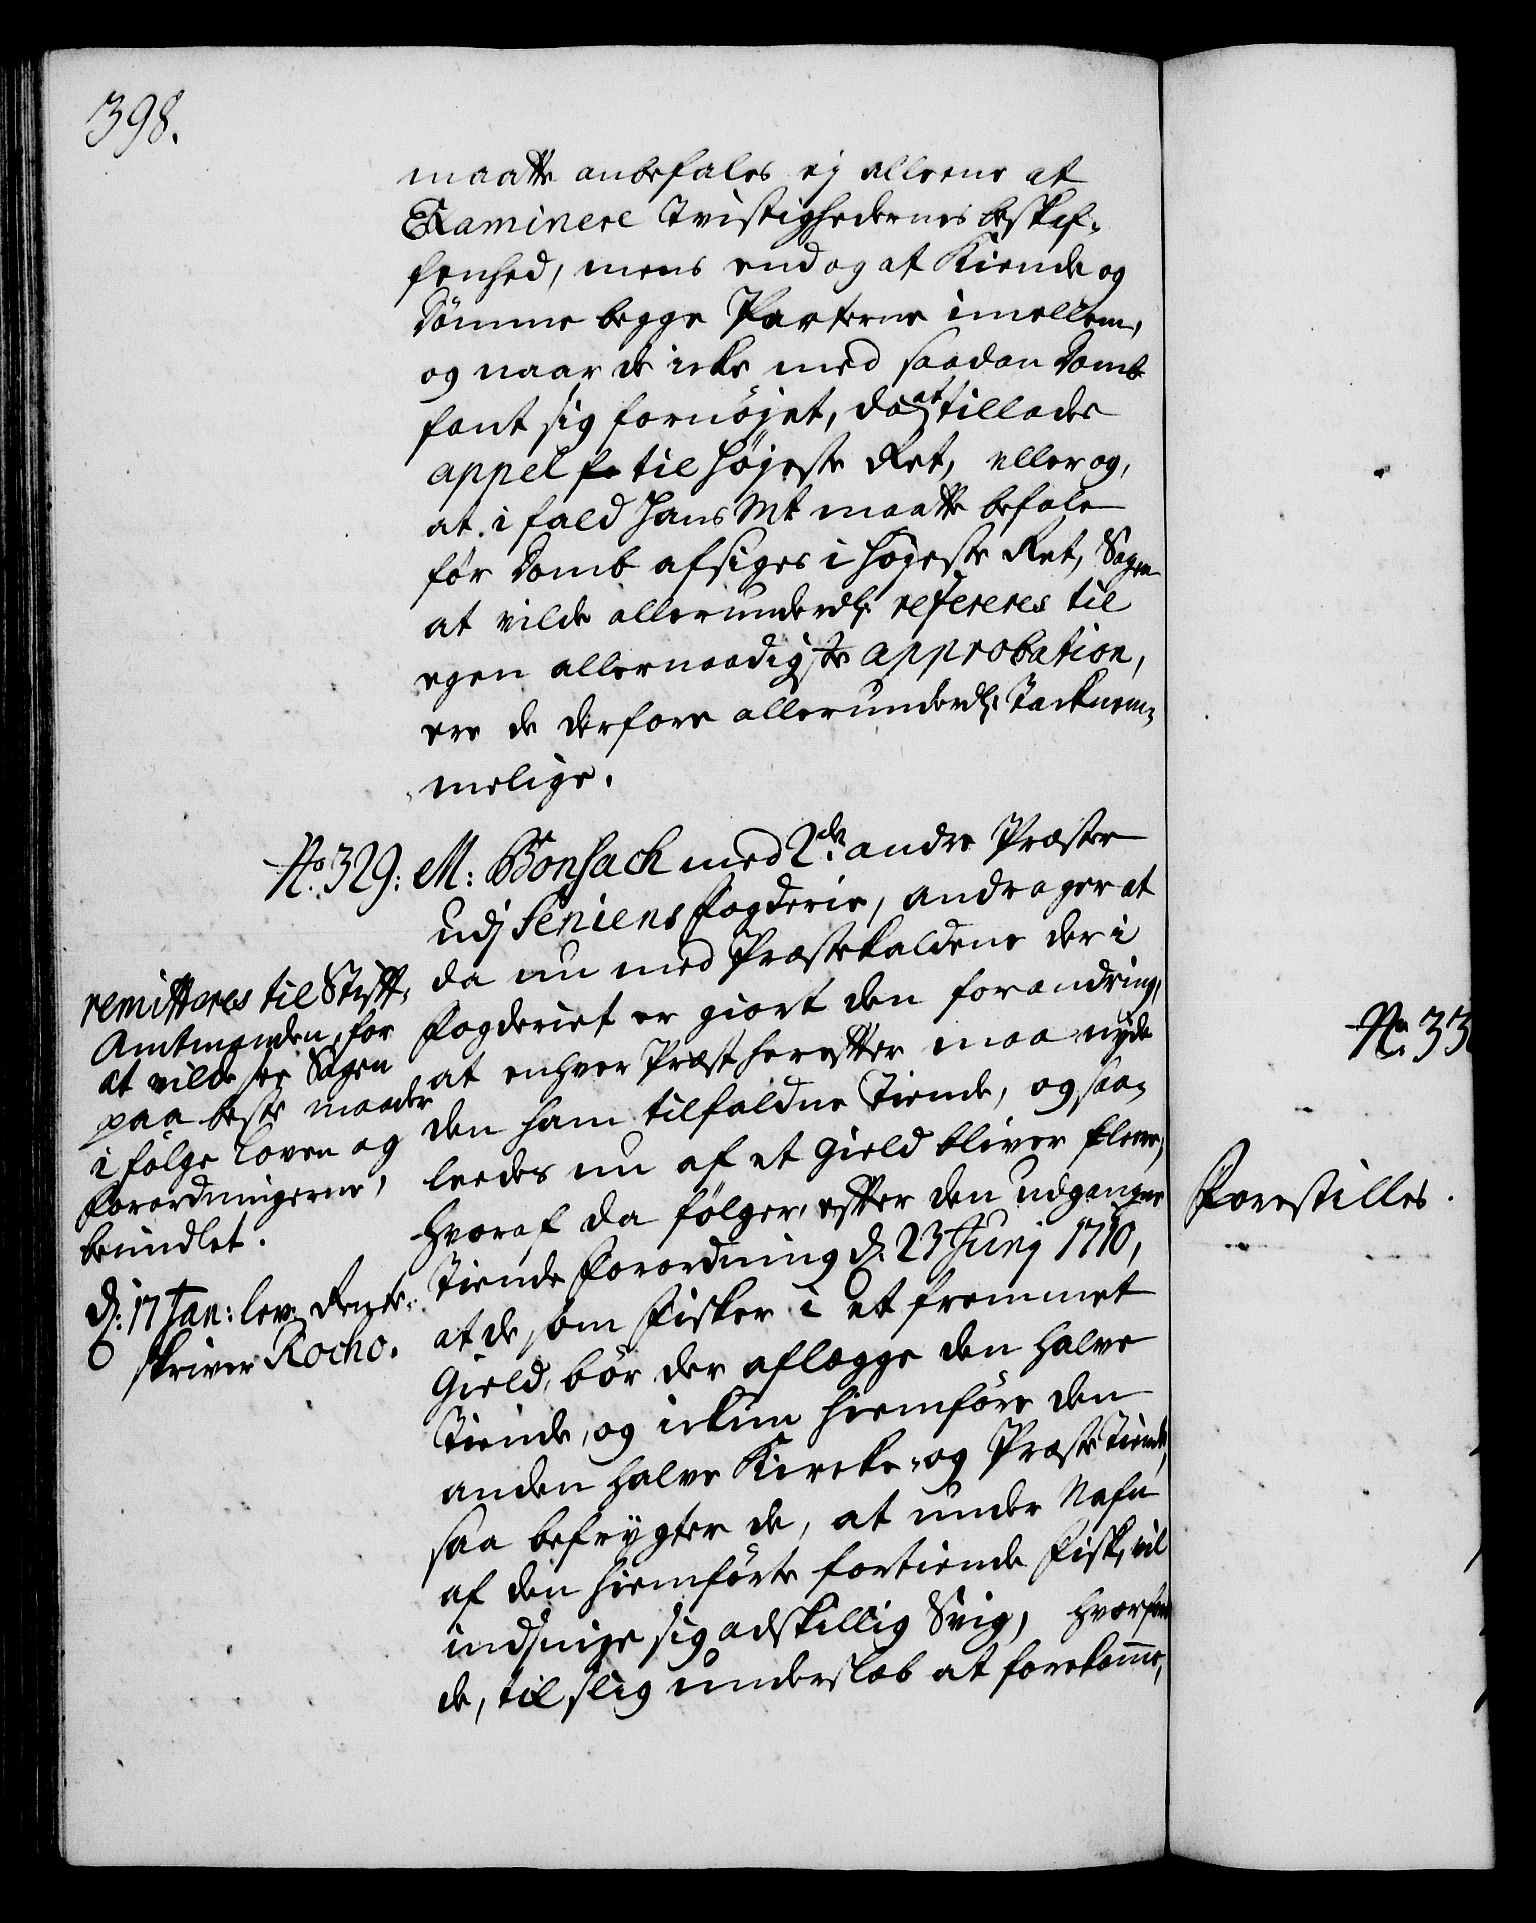 398.
maatte anbefales ej alleene at
Examinere Tvistighedernes beskaf-
fenhed, mens endog at Kiende og
Dömme begge Parterne imellem,
og naar de icke med saadan Domb
fant sig fornøjet, da at tillades
appel til Højeste Ret, eller og,
at i fald Hans Mt maatte befale
før Domb afsiges i Højeste Ret, Sagen
at vilde allerunderd. refereres til
egen allernaadigste approbation,
ere de derfore allerunderd. Tacknem-
melige.
No. 329: M: Bonsach med 2de andre Præster
udj Seniens Fogderie, andrager at
da nu med Præstekaldene der i
Fogderiet er giort den forandring,
at enhver Præst herefter maa nyde
den ham tilfaldne Tiende, og saa-
leedes nu af et Gield bliver fleere,
hvoraf da følger, efter den udgangne
Tiende Forordning d. 23 Junj 1710,
at de som Fisker i et fremmet
Gield, bör der aflegge den halve
Tiende, og ickun hiemföre den
anden halve Kircke- og Præste Tiende,
saa befrygter de, at under Nafn
af den hiemförte fortiende Fisk, vil
indsnige sig adskillig Svig, hvorfore
de, til slig underslæb at forekomme,
remitteres til Stift-
Amtmanden, for
at vilde see Sagen
paa beste maader
i følge Loven og
Forordningerne,
bemidlet.
d. 17 Jan: lev. Rente-
skriver Rocho.
No. 33
Forestilles.